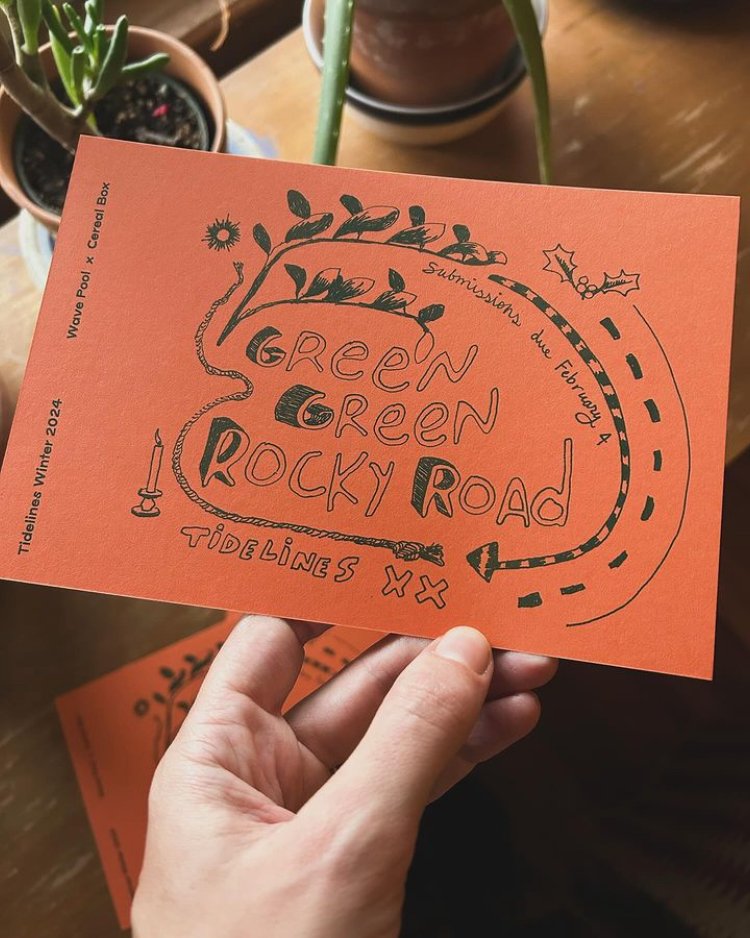 Wave Pool x Cereal Box
Tidelines Winter 2024
Submissions due February 4
GReeN
GReeN
ROCKY ROAd
TiDELiNES XX